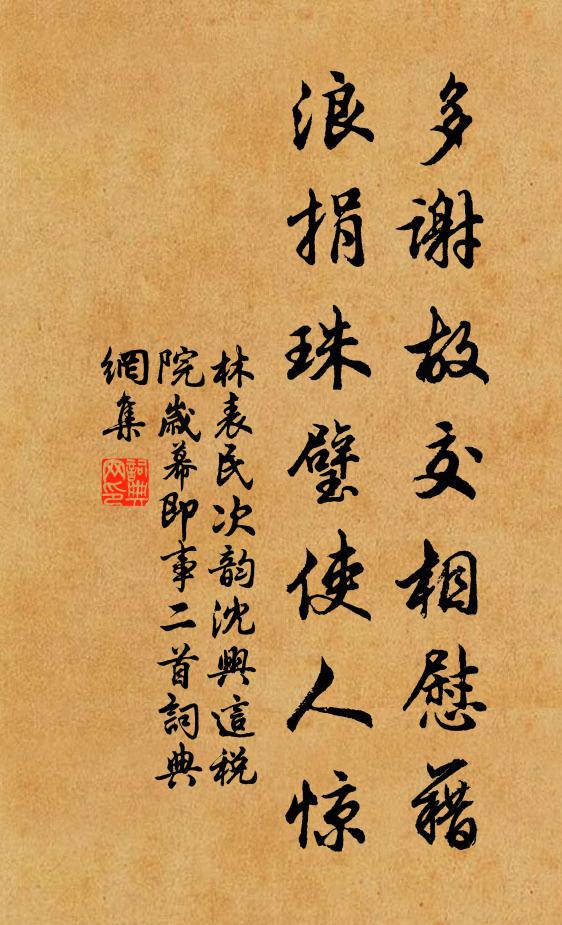 多谢故交相慰藉
浪捐珠璧使人惊
林表民次韵沈興這税
院歲暮即事二首詞典
網集
詞典
网印